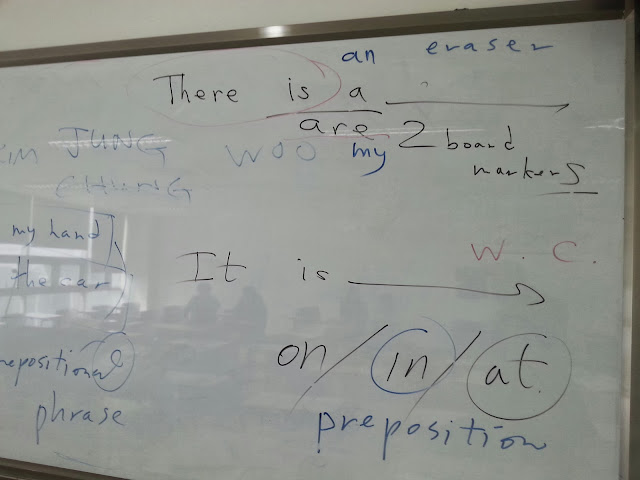 an eraser
There is a
are 2 board
KIM JUNG WOO my markers
CHUNG
my hand
W. C.
the car It is
on/in/at
prepositional
phrase preposition